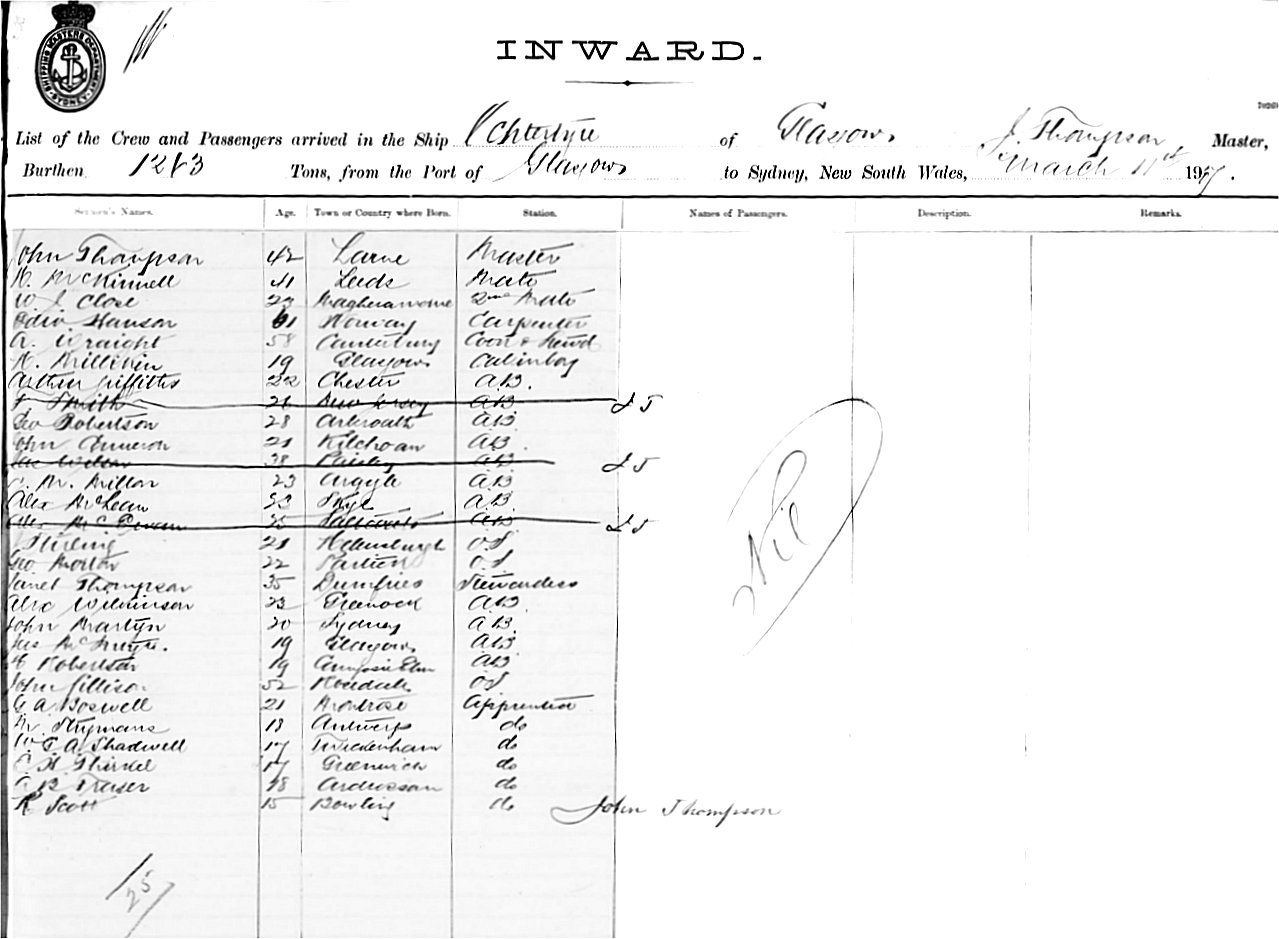 SHIPPING MASTERS DEPARTMENT SYDNEY
INWARD.
List of the Crew and Passengers arrived in the Ship Ochtertyre of Glasgow J. Thompson, Master,
Burthen 1283 Tons, from the Port of Glasgow to Sydney, New South Wales, March 11th 190
Seamen's Names. Age. Town or Country where Born. Station. Names of Passengers. Description. Remarks.
John Thompson 42 Larne Master
McKinnell 41 Leeds Mate
W J Close 23 2nd Mate
Hanson Norway Carpenter
A. Wraight 58 Canterbury Cook & Stewd
Milliken 19 Glasgow Cabinboy
Arthur Griffiths 22 Chester A.B.
Smith New Jersey AB
Geo Robertson 28 Arbroath AB
John Cameron 21 Kilchoan AB
Jas Wilson 38 Paisley AB
M. Millar 23 Argyle AB
Alex McLean 23 Skye AB
Alex AB
Stirling 21 Helensburgh OS
Geo Morton 22 Partick OS
Janet Thompson 35 Dumfries Stewardess
Alex Wilkinson 23 Greenock AB
John Martyn 20 Sydney AB
Jas McIntyre. 19 Glasgow AB
Robertson 19 AB
John Gillison 52 OS
G A Boswell 21 Montrose Apprentice
Nil
M. Stuymans 18 Antwerp do
W E A Shadwell 17 Twickenham do
E H Thirkel 17 Greenwich do
Fraser 18 Ardrossan do
R Scott 15 Bowling do John Thompson
25